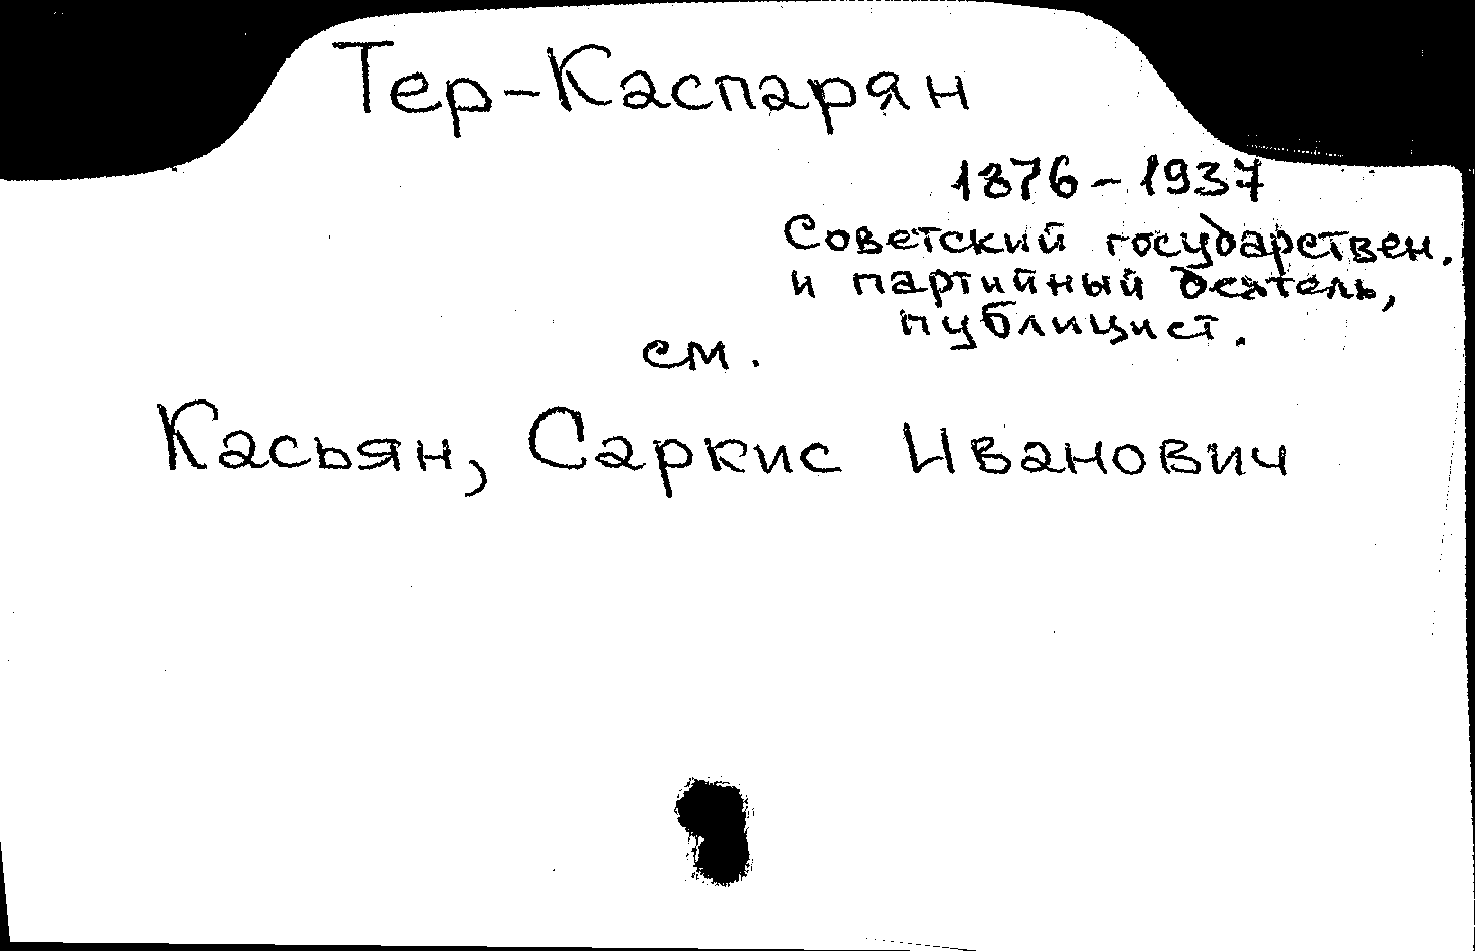 Тер-Каспарян
1876-1937
Советский государствен.
и партийный деятель,
публицист.
см.
Касьян, Саркис Иванович